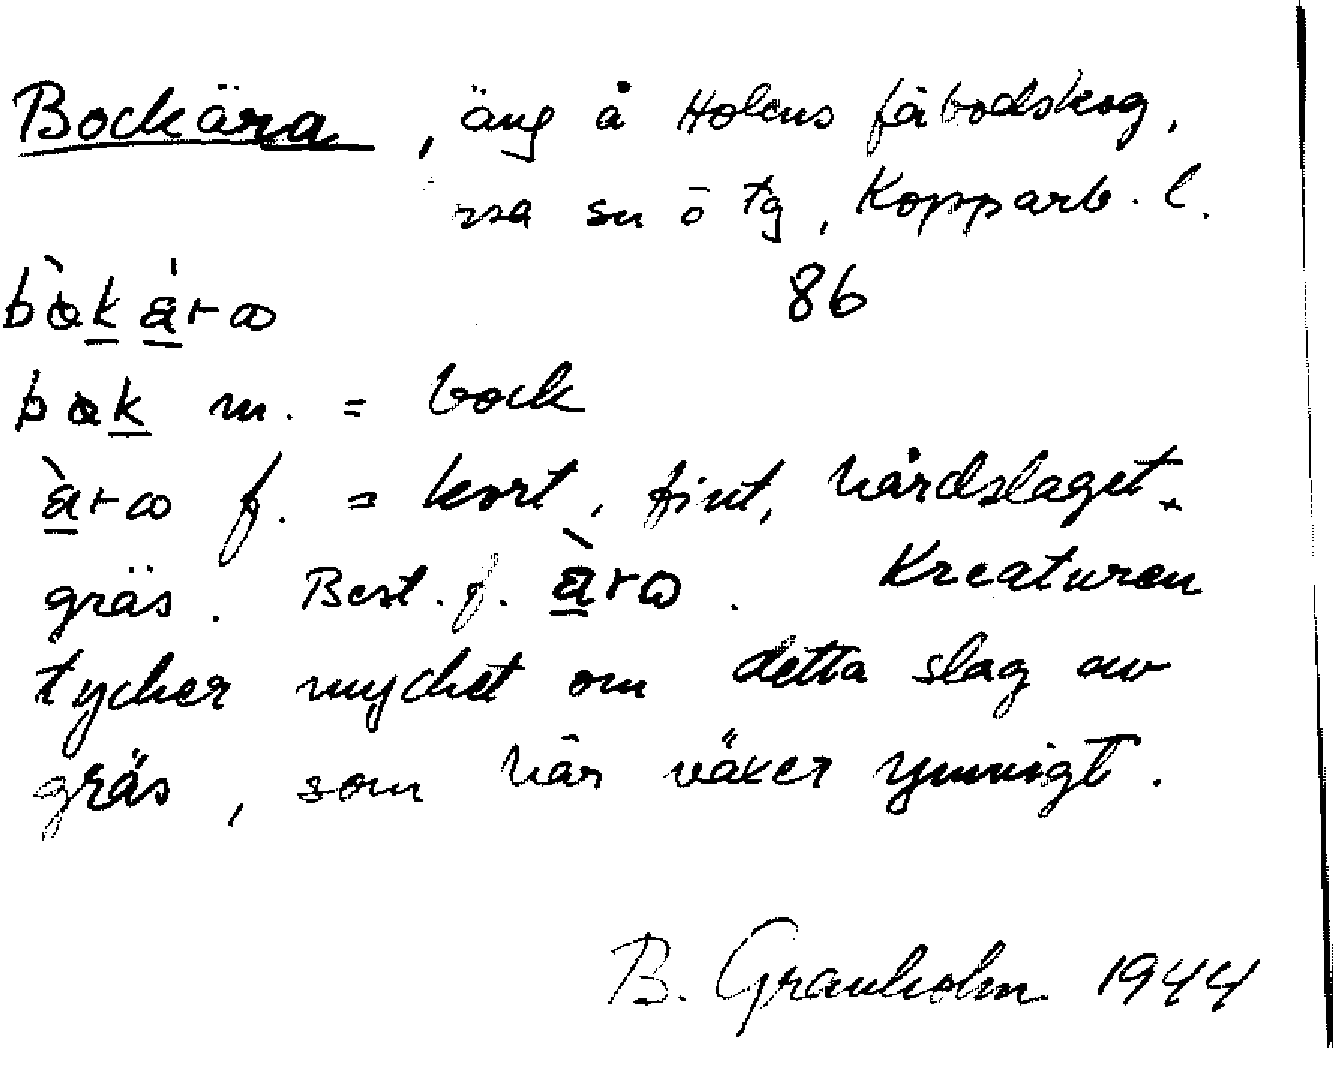 Bockära, äng å Holens fäbodskog,
rsa sn ō tg, Kopparb. l.
bòkáꞃɷ 86
bok m. = bock
àrɷ f. = kort, fint, hårdslaget
gräs. Best. f. àrɷ. Kreaturen
tycker mycket om detta slag av
gräs, som här växer ymnigt.
B. Granholm 1944